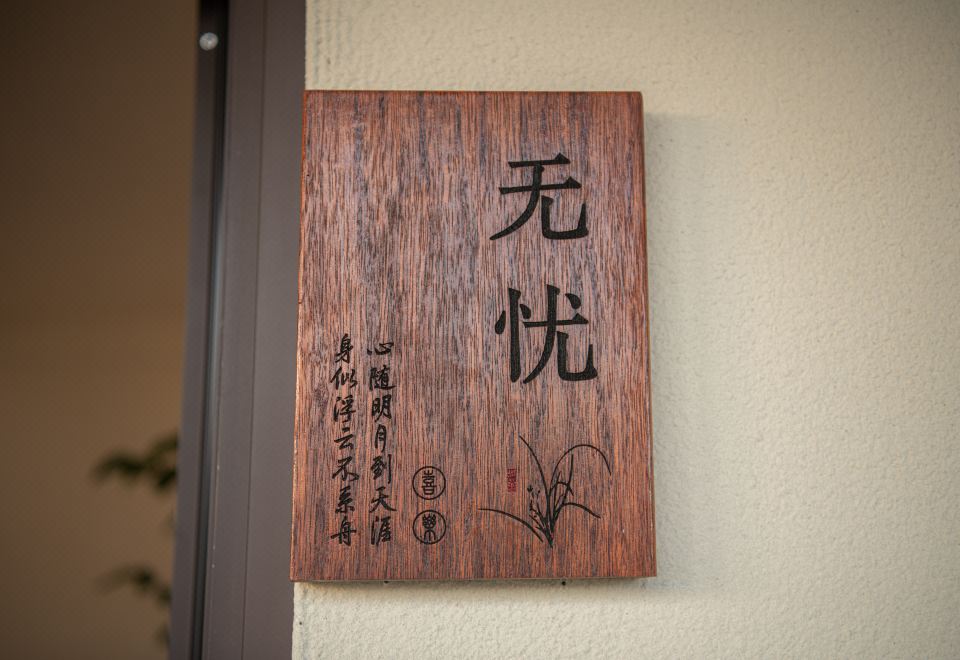 无忧
喜樂
心随明月到天涯
身似浮云不系舟